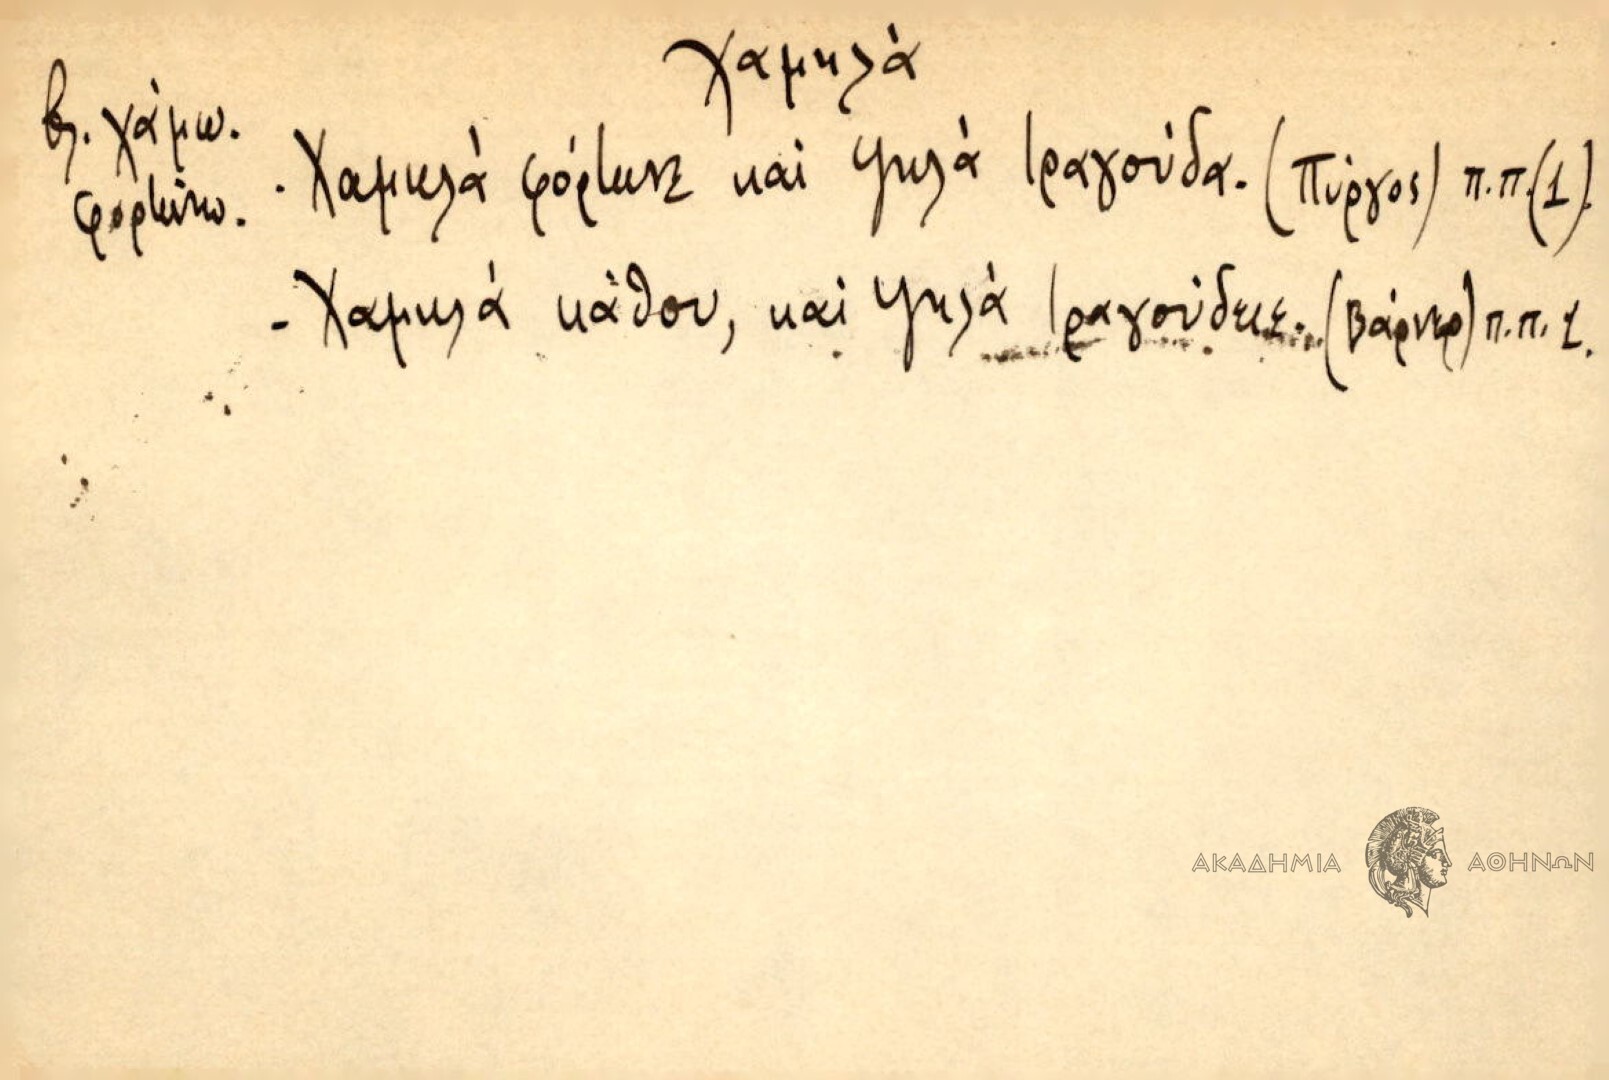 Χαμηλὰ
βλ. χάμω.
φορτώνω.
· Χαμηλὰ φόρτωνε καὶ ψηλὰ τραγούδα. (Πύργος) π.π.(1).
- Χαμηλὰ κάθου, καὶ ψηλὰ τραγούδειε. (Βάρνερ) π.π. 1.
ΑΚΑΔΗΜΙΑ ΑΘΗΝΩΝ